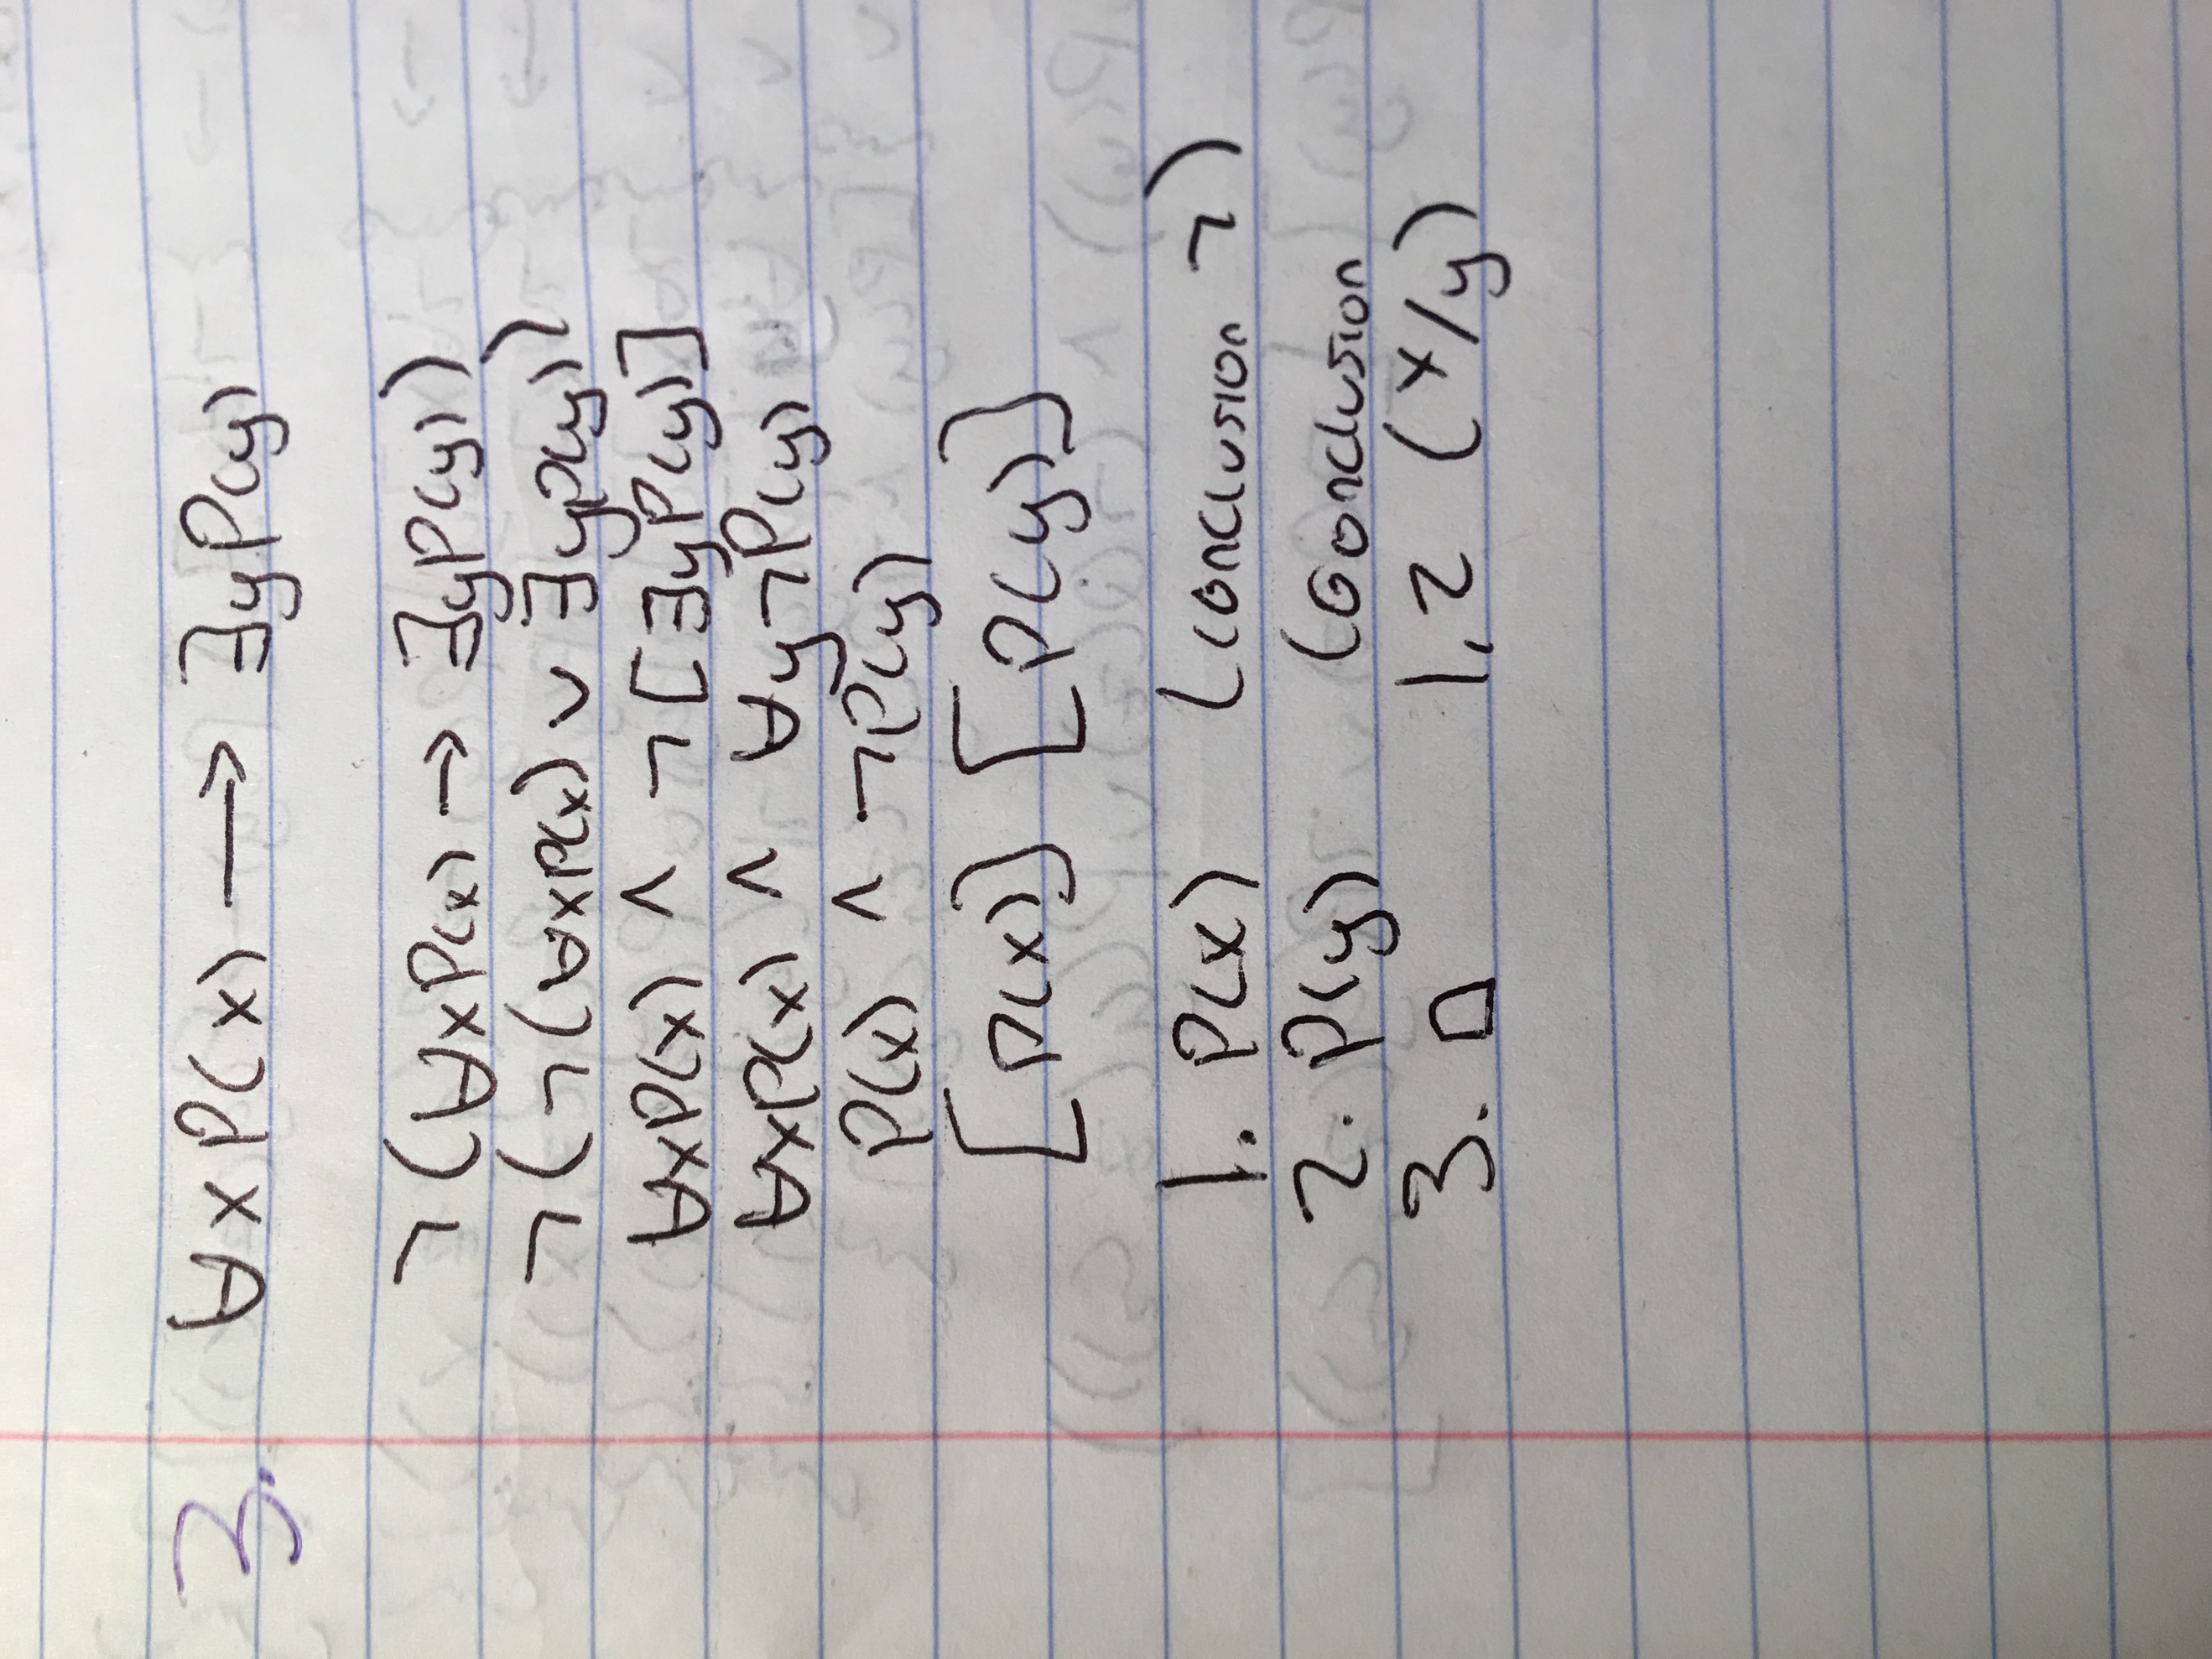 3. ∀xP(x) ⟶ ∃yP(y)
¬(∀xP(x) → ∃yP(y))
¬(¬(∀xP(x) ∨ ∃yP(y))
∀xP(x) ∧ ¬[∃yP(y)]
∀xP(x) ∧ ∀y¬P(y)
P(x) ∧ ¬P(y)
[P(x)] [P(y)]
1. P(x) (conclusion ¬)
2. P(y) (conclusion
3. □ 1,2 (x/y)